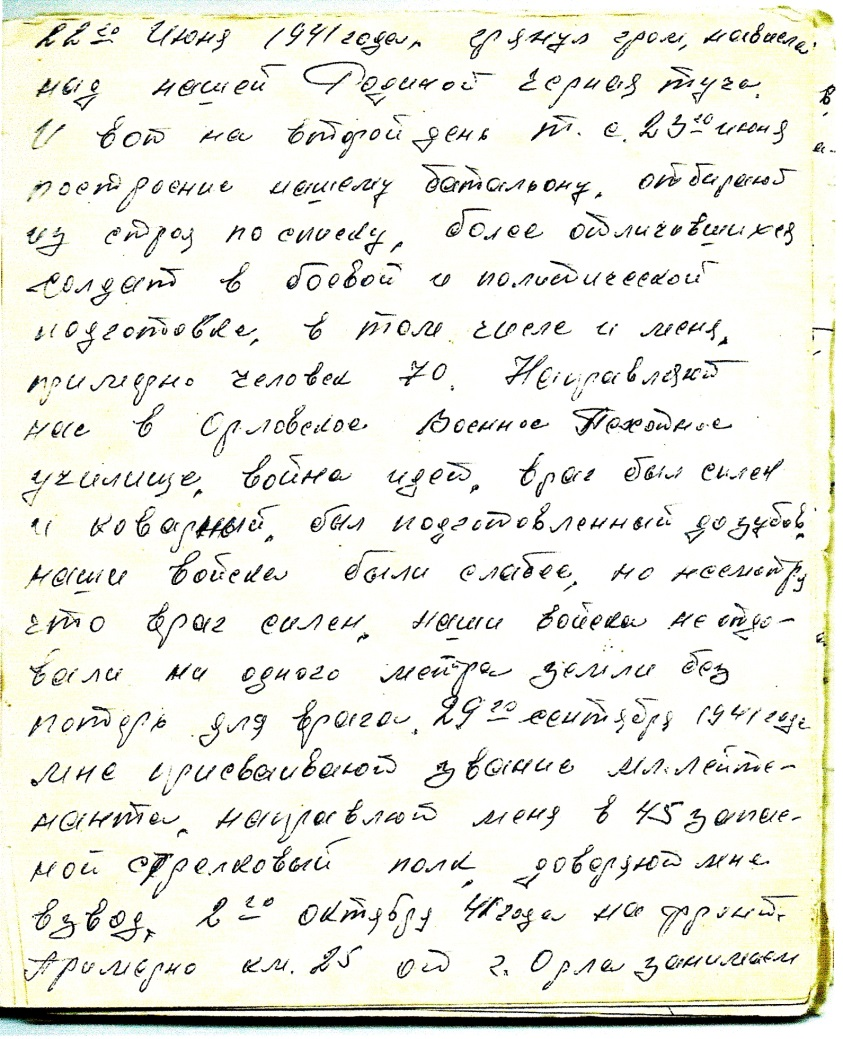 22го Июня 1941 года, грянул гром, нависла
над нашей Родиной черная туча.
И вот на второй день т.е. 23го июня
построение нашему батальону, отбирают
из строя по списку, более отличившихся
солдат в боевой и политической
подготовке, в том числе и меня,
примерно человек 70. Направляют
нас в Орловское Военное Пехотное
училище, война идет, враг был силен
и коварный, был подготовленный до зубов,
наши войска были слабее, но несмотря
что враг силен, наши войска не отда-
вали ни одного метра земли без
потерь для врага. 29го сентября 1941 года
мне присваивают звание мл. лейте-
нанта, направлют меня в 45 запас-
ной стрелковый полк, доверяют мне
взвод, 2го октября 41 года на фронт.
Примерно км. 25 от г. Орла занимаем